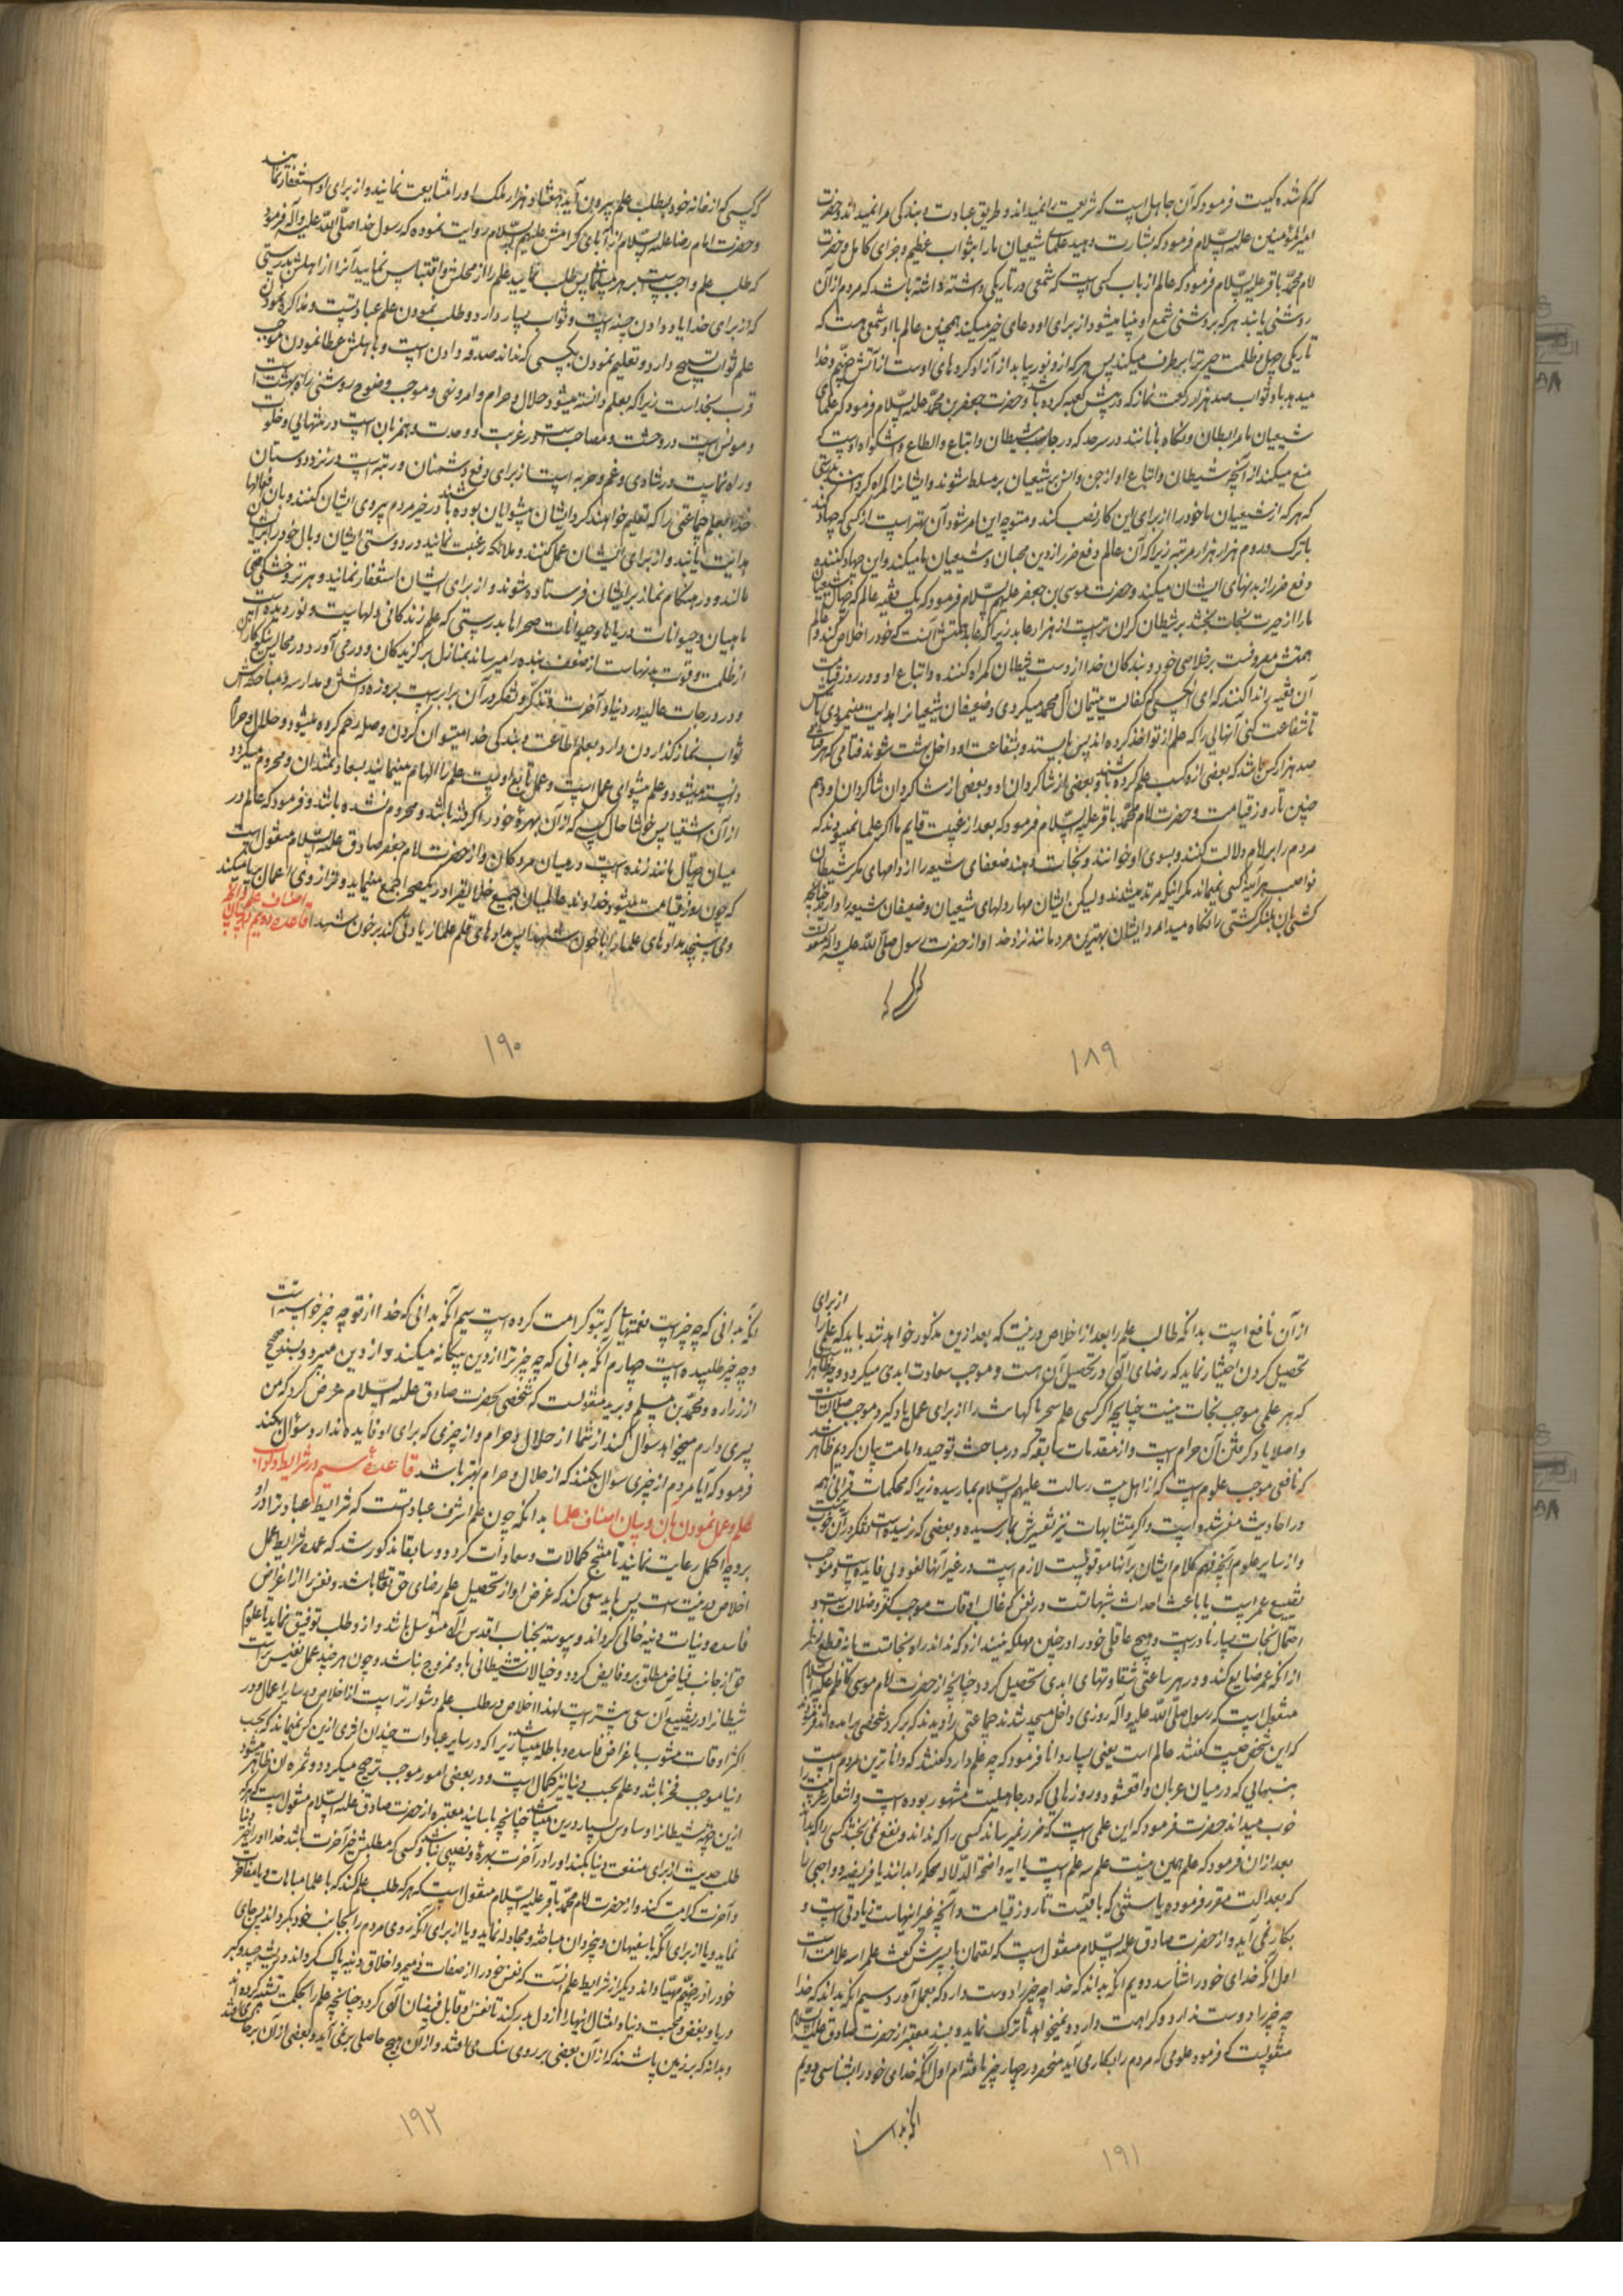 که گم شده کیست فرمود که آن جاهل است که شریعت ما را نمیداند و طریق عبادت و بندگی ما را نمیداند و حضرت
امیر المؤمنین علیه السلام فرمود که بشارت دهید علمای شیعیان ما را بثواب عظیم و جزای کامل و حضرت
امام محمد باقر علیه السلام فرمود که عالم از باب کسی است که شمعی در تاریکی داشته باشد که مردم از آن
روشنی یابند هر که بروشنی شمع او بینا میشود از برای او دعای خیر میکند همچنین عالم با او شمعی هست که
تاریکی جهل و ظلمت حیرت را برطرف میکند پس هر که از و نور بیابد از آزاد کرده‌های اوست از آتش جهنم و خدا
میدهد باو ثواب صد هزار رکعت نماز که در پیش کعبه کرده باشد و حضرت جعفر بن محمد علیه السلام فرمود که علمای
شیعیان ما مرابطان و نگاه بانانند در سرحد که در جانب شیطان و اتباع
منع میکنند از آنچه شیطان و اتباع او از جن و انس بر شیعیان ما مسلط شوند و ایشانرا گمراه گردانند بدرستی
که هر که از شیعیان ما خود را از برای این کار نصب کند و متوجه این امر شود آن بهتر است از کسی که جهاد کند
با ترک و روم هزار هزار مرتبه زیرا که آن عالم دفع ضرر از دین محبان و شیعیان ما میکند و این جهاد کننده
دفع ضرر از بدنهای ایشان میکند و حضرت موسی بن جعفر علیهم السلام فرمود که یک فقیه عالم که
ما را از حیرت نجات بخشد بر شیطان گران تر است از هزار عابد زیرا که عابد همتش آنست که خود را خلاص کند و عالم
همتش مصروفست بر خلاصی خود و بندگان خدا از دست شیطان گمراه کننده و اتباع او و در روز قیامت
آن فقیه را ندا کنند که ای کسی که کفالت یتیمان آل محمد میکردی و ضعیفان شیعیانرا هدایت مینمودی باش
تا شفاعت کنی آنهایی را که علم از تو اخذ کرده‌اند پس بایستد و بشفاعت او داخل بهشت شوند
صد هزار کس باشد که بعضی ازو کسب علم کرده باشند و بعضی از شاگردان او و بعضی از شاگردان شاگردان او و هم
چنین تا روز قیامت و حضرت امام محمد باقر علیه السلام فرمود که بعد از غیبت قایم ما اگر علما نمی‌بودند که
مردم را بر امام دلالت کنند و بسوی او خوانند و نجات دهند ضعفای شیعه را از دامهای مکر شیطان
نواصب هر آینه کسی نمیماند مگر اینکه مرتد میشدند ولیکن ایشان مهار دلهای شیعیان و ضعیفان شیعه را دارند چنانچه
کشتی بان لنگر کشتی را نگاه میدارد و ایشان بهترین مردمانند نزد خدا و از حضرت رسول صلی الله علیه و اله منقولست
که کسی
۱۸۹
که کسی که از خانه خود بطلب علم بیرون آید هفتاد هزار ملک او را مشایعت نمایند و از برای او استغفار نمایند
و حضرت امام رضا علیه السلام از آبای گرامش علیهم السلام روایت نموده که رسول خدا صلی الله علیه و آله فرمود
که طلب علم واجب است بر هر مسلمانی پس طلب نمایید علم را از محلش و اقتباس نمایید آنرا از اهلش بدرستی
که از برای خدا یاد دادن حسنه است و ثواب بسیار دارد و طلب نمودن علم عبادتست و مذاکره نمودن
علم ثواب تسبیح دارد و تعلیم نمودن بکسی که نداند صدقه دادن است و باهلش عطا نمودن موجب
قرب بخداست زیرا که بعلم دانسته میشود حلال و حرام و امر و نهی و موجب وضوح روشنی راه بهشت است
و مونس است در وحشت و مصاحبست در غربت و وحدت و همزبان است در تنهایی و خلوت
و راه نماست در شادی و غم و حربه است از برای دفع دشمنان و رتبه است در نزد دوستان
خدا بعلم جماعتی را که تعلیم خواهند کرد ایشان پیشوایان بوده باشند در خیر مردم پیروی ایشان کنند و بان فعالها
هدایت یابند و از برای ایشان عمل کنند و ملائکه رغبت نمایند در دوستی ایشان و بال خود را بر ایشان
مالند و در هنگام نماز برایشان فرستاده شوند و از برای ایشان استغفار نمایند و هر تر و خشکی حتی
ماهیان و حیوانات دریاها و حیوانات صحراها بدرستی که علم زندگانی دلهاست و نور دیده است
از ظلمت و قوت بدنهاست از ضعف بنده را میرساند بمنازل برگزیدگان و در می آورد در مجالس نیکوکاران
و در درجات عالیه در دنیا و آخرت و تذکر و تفکر در آن برابر است بروزه داشتن و مدارسه و مباحثه‌اش
ثواب نماز گذاردن دارد بعلم طاعت و بندگی خدا میتوان کردن و صله رحم کرده میشود و حلال و حرام
دانسته میشود و علم پیشوای عمل است و عمل تابع اوست علم را الهام مینمایند بسعادتمندان و محروم میگردد
از آن اشقیا پس خوشا حال کسی که از آن بهره خود را گرفته باشد و محروم نشده باشد و فرمود که عالم در
میان جهال مانند زنده است در میان مردگان و از حضرت امام جعفر صادق علیه السلام منقول است
که چون روز قیامت میشود خداوند عالمیان جمیع خلایق را در یک صحرا جمع مینماید و ترازوی اعمال بپا میکند
و می سنجد مدادهای علما را با خون شهدا پس مدادهای قلم علما زیادتی کند بر خون شهدا قاعده دویم در بیان اصناف علم
۱۹۰
از آن نافع است بدانکه طالب علم را بعد از اخلاص در نیت که بعد ازین مذکور خواهد شد باید که علمی را از برای
تحصیل کردن اختیار نماید که رضای الهی در تحصیل آن هست و موجب سعادت ابدی میگردد
که هر علمی موجب نجات نیست چنانچه اگر کسی علم سحر یا کهانت را از برای عمل یاد گیرد موجب ضلالت است
و اصلا یاد گرفتن آن حرام است و از مقدمات سابقه که در مباحث توحید و امامت بیان کردیم ظاهر شد
که نافعی موجب علوم است که از اهل بیت رسالت علیهم السلام بما رسیده زیرا که محکمات قرآنی هم
در احادیث مفسر شده است و اکثر متشابهات نیز تفسیرش بما رسیده و بعضی که نرسیده است تفکر در آن خوب نیست
و از سایر علوم آنچه فهم کلام ایشان بر آنها موقوفست لازم است و در غیر آنها لغو و بی فایده است و موجب
تضییع عمر است یا باعث احداث شبهاتست در نفس که غالب اوقات موجب کفر و ضلالت است و
احتمال نجات بسیار نادر است و هیچ عاقلی خود را در چنین مهلکه نیندازد که نداند راه نجاتست یا نه قطع نظر
از آنکه عمر ضایع کند و در هر ساعتی شقاوتهای ابدی تحصیل گردد چنانچه از حضرت امام موسی کاظم علیه السلام
منقول است که رسول صلی الله علیه و آله روزی داخل مسجد شدند جماعتی را دیدند که بر گرد شخصی بر آمده‌اند فرمود
که این شخص کیست گفتند عالم است یعنی بسیار دانا فرمود که چه علم دارد گفتند که داناترین مردم است
بنسبهایی که در میان عربان واقعشده و روزهایی که در جاهلیت مشهور بوده است و اشعار عرب را
خوب میداند حضرت فرمود که این علمی است که ضرر نمیرساند کسی را که نداند و نفع نمی بخشد کسی را که بداند
بعد از آن فرمود که علم همین نیست علم سه علم است یا ایه واضحة الدلاله محکم را بدانند یا فریضه و واجبی را
که بعدالت مقرر فرموده یا سنتی که باقیست تا روز قیامت و آنچه غیر اینهاست زیادتی است و
بکار نمی آید و از حضرت صادق علیه السلام منقول است که لقمان با پسرش گفت علم را سه علامت است
اول آنکه خدای خود را شناسد دویم آنکه بداند که خدا چه چیز را دوست دارد که بعمل آورد سیم آنکه بداند که خدا
چه چیز را دوست ندارد و کراهت دارد و نمیخواهد تا ترک نماید و بسند معتبر از حضرت صادق علیه السلام
منقولست که فرمود علومی که مردم را بکار می آید منحصر در چهار چیز یافته‌ام اول آنکه خدای خود را بشناسی دویم
آنکه بدانی
۱۹۱
آنکه بدانی که چه چیز است نعمتهایی که بتو کرامت کرده است سیم آنکه بدانی که خدا از تو چه چیز خواسته است
و چه چیز طلبیده است چهارم آنکه بدانی که چه چیز ترا از دین بیگانه میکند و از دین میبرد و بسند صحیح
از زراره و محمد بن مسلم و برید منقولست که شخصی بحضرت صادق علیه السلام عرض کرد که من
پسری دارم میخواهد سؤال کند از شما از حلال و حرام و از چیزی که برای او فایده ندارد سؤال نکند
فرمود که آیا مردم از چیزی سؤال میکنند که از حلال و حرام بهتر باشد قاعدهٔ سیم در شرایط و آداب
علم و عمل نمودن بآن و بیان اصناف علما بدانکه چون علم اشرف عبادتست که شرایط عبادت را در او
بر وجه اکمل رعایت نمایند تا منتج کمالات و سعادات گردد و سابقا مذکور شد که عمده شرایط عمل
اخلاص در نیت است پس باید سعی کند که غرض او از تحصیل علم رضای حق تعالی باشد و نفس را از اغراض
فاسده و نیات دنیه خالی گرداند و پیوسته بجناب اقدس الهی متوسل باشد و از و طلب توفیق نماید تا علوم
حق از جانب فیاض مطلق برو فایض گردد و خیالات شیطانی با او ممزوج نباشد و چون هر چند عمل نفیس تر است
شیطانرا در تضییع آن سعی بیشتر است لهذا اخلاص در طلب علم دشوارتر است از اخلاص در سایر اعمال و در
اکثر اوقات مشوب باغراض فاسده و باطله میباشد زیرا که در سایر عبادات چندان اثری ازین کس نمیماند که بحسب
دنیا موجب فخر باشد و علم بحسب دنیا نیز کمال است و در بعضی امور موجب ترجیح میگردد و ثمره‌اش ظاهر میشود
ازین جهت شیطانرا وساوس بسیار درین میباشد چنانچه باسانید معتبره از حضرت صادق علیه السلام منقول است که هر که
طلب حدیث از برای منفعت دنیا بکند او را در آخرت بهره و نصیبی نباشد و کسی که مطلبش خیر آخرت باشد خدا او را خیر دنیا
و آخرت کرامت کند و از حضرت امام محمد باقر علیه السلام منقول است که هر که طلب علم کند که با علما مباهات و یا مفاخرت
نماید و یا از برای آنکه با سفیهان و بیخردان مباحثه و مجادله نماید و یا از برای آنکه روی مردم را بجانب خود بگرداند پس جای
خود را در جهنم مهیا داند و دیگر از شرایط علم آنست که نفس خود را از صفات ذمیمه و اخلاق دنیه پاک گرداند و ریشه حسد و کبر
و ریا و بغض و محبت دنیا و امثال اینها را از دل بدر کند تا نفس او قابل فیضان الهی گردد چنانچه علم را بحکمت تشبیه کرده‌اند
و بدانه که بر زمین پاشند که از آن بعضی بر روی سنگ می افتد و از آن هیچ حاصلی بر نمی آید و بعضی از آن
۱۹۲